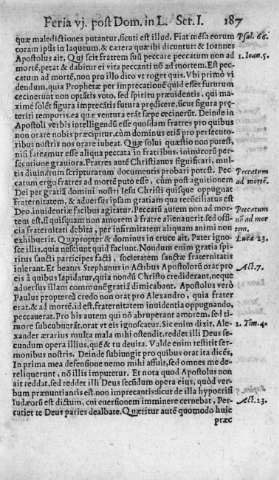 Feria vj. post Dom. in L. Ser. I. 187
quæ maledictiones putantur, sicuti est illud. Fiat mēsa eorum Psal. 68.
coram ipsis in laqueum, & cætera quæ ibi dicuntur: & Ioannes
Apostolus ait, Qui scit fratrem suū peccare peccatum non ad 1. Ioan. 5.
mortē, petat & dabitur ei vita peccanti nō ad mortem. Est pec
catum ad mortē, non pro illo dico vt roget quis. Vbi primo vi
dendum, quia Prophetæ per imprecationē quid esset futurum
cecinerunt non optantis voto, sed spiritu præuidentis, qui ma
ximè solēt figuræ imprecātis futura prædicere, sicut figura præ
teriti temporis ea quæ ventura erāt sæpe cecinerūt. Deinde in
Apostoli verbis intelligendū esse quosdam fratres pro quibus
non orare nobis præcipitur, cùm dominus etiā pro persecuto-
ribus nostris nos orare iubeat. Quæ solui quæstio non potest,
nisi fateamur esse aliqua peccata in fratribus, inimicorū per-
secutione grauiora. Fratres autē Christianos significari, mul-
tis diuinarum scripturarum documentis probari potest. Pec Peccatum
catum ergo fratris ad mortē puto esse, cùm post agnitionem ad mortē.
Dei per gratiā domini nostri Iesu Christi quisque oppugnat
fraternitatem, & aduersus ipsam gratiam qua reconciliatus est
Deo inuidentiæ facibus agitatur. Peccatū autem non ad mor- Peccatum
tem, est, si quisquam non amorem à fratre alienauerit sed offi- nō ad mor
cia fraternitati debita, per infirmitatem aliquam animi non tem.
exhibuerit. Quapropter & dominus in cruce ait, Pater igno- Lucæ 23.
sce illis, quia nesciunt quid faciunt. Nondum enim gratia spi-
ritus sancti participes facti, societatem sanctæ fraternitatis
inierant. Et beatus Stephanus in Actibus Apostolorū orat pro Act. 7.
eis à quibus lapidatur, quia nondū Christo crediderant, neque
aduersus illam communē gratiā dimicabant. Apostolus verò
Paulus propterea credo non orat pro Alexandro, quia frater
erat, & ad mortē, id est, fraternitatem inuidentia oppugnando,
peccauerat. Pro his autem qui nō abruperant amorem, sed ti-
more subcubuerāt, orat vt eis ignoscatur. Sic enim dixit, Alex- 2. Tim. 4.
ander ærarius multa mala mihi ostendit, reddet illi Deus se-
cundum opera illius, quē & tu deuita. Valde enim restitit ser-
monibus nostris. Deinde subiungit pro quibus orat ita dicēs,
In prima mea defensione nemo mihi affuit, sed omnes me de-
reliquerunt, nō illis imputetur. Et nota quod Apostolus non
ait reddat, sed reddet illi Deus secūdum opera eius, quod ver-
bum prænuntiantis est non imprecantis, sicut de illa hypocrisi
Iudæorū est dictum, cùm euersionem imminere cernebat, Per- Act. 23.
cutiet te Deus paries dealbate. Quæritur autē quomodo huic
præc